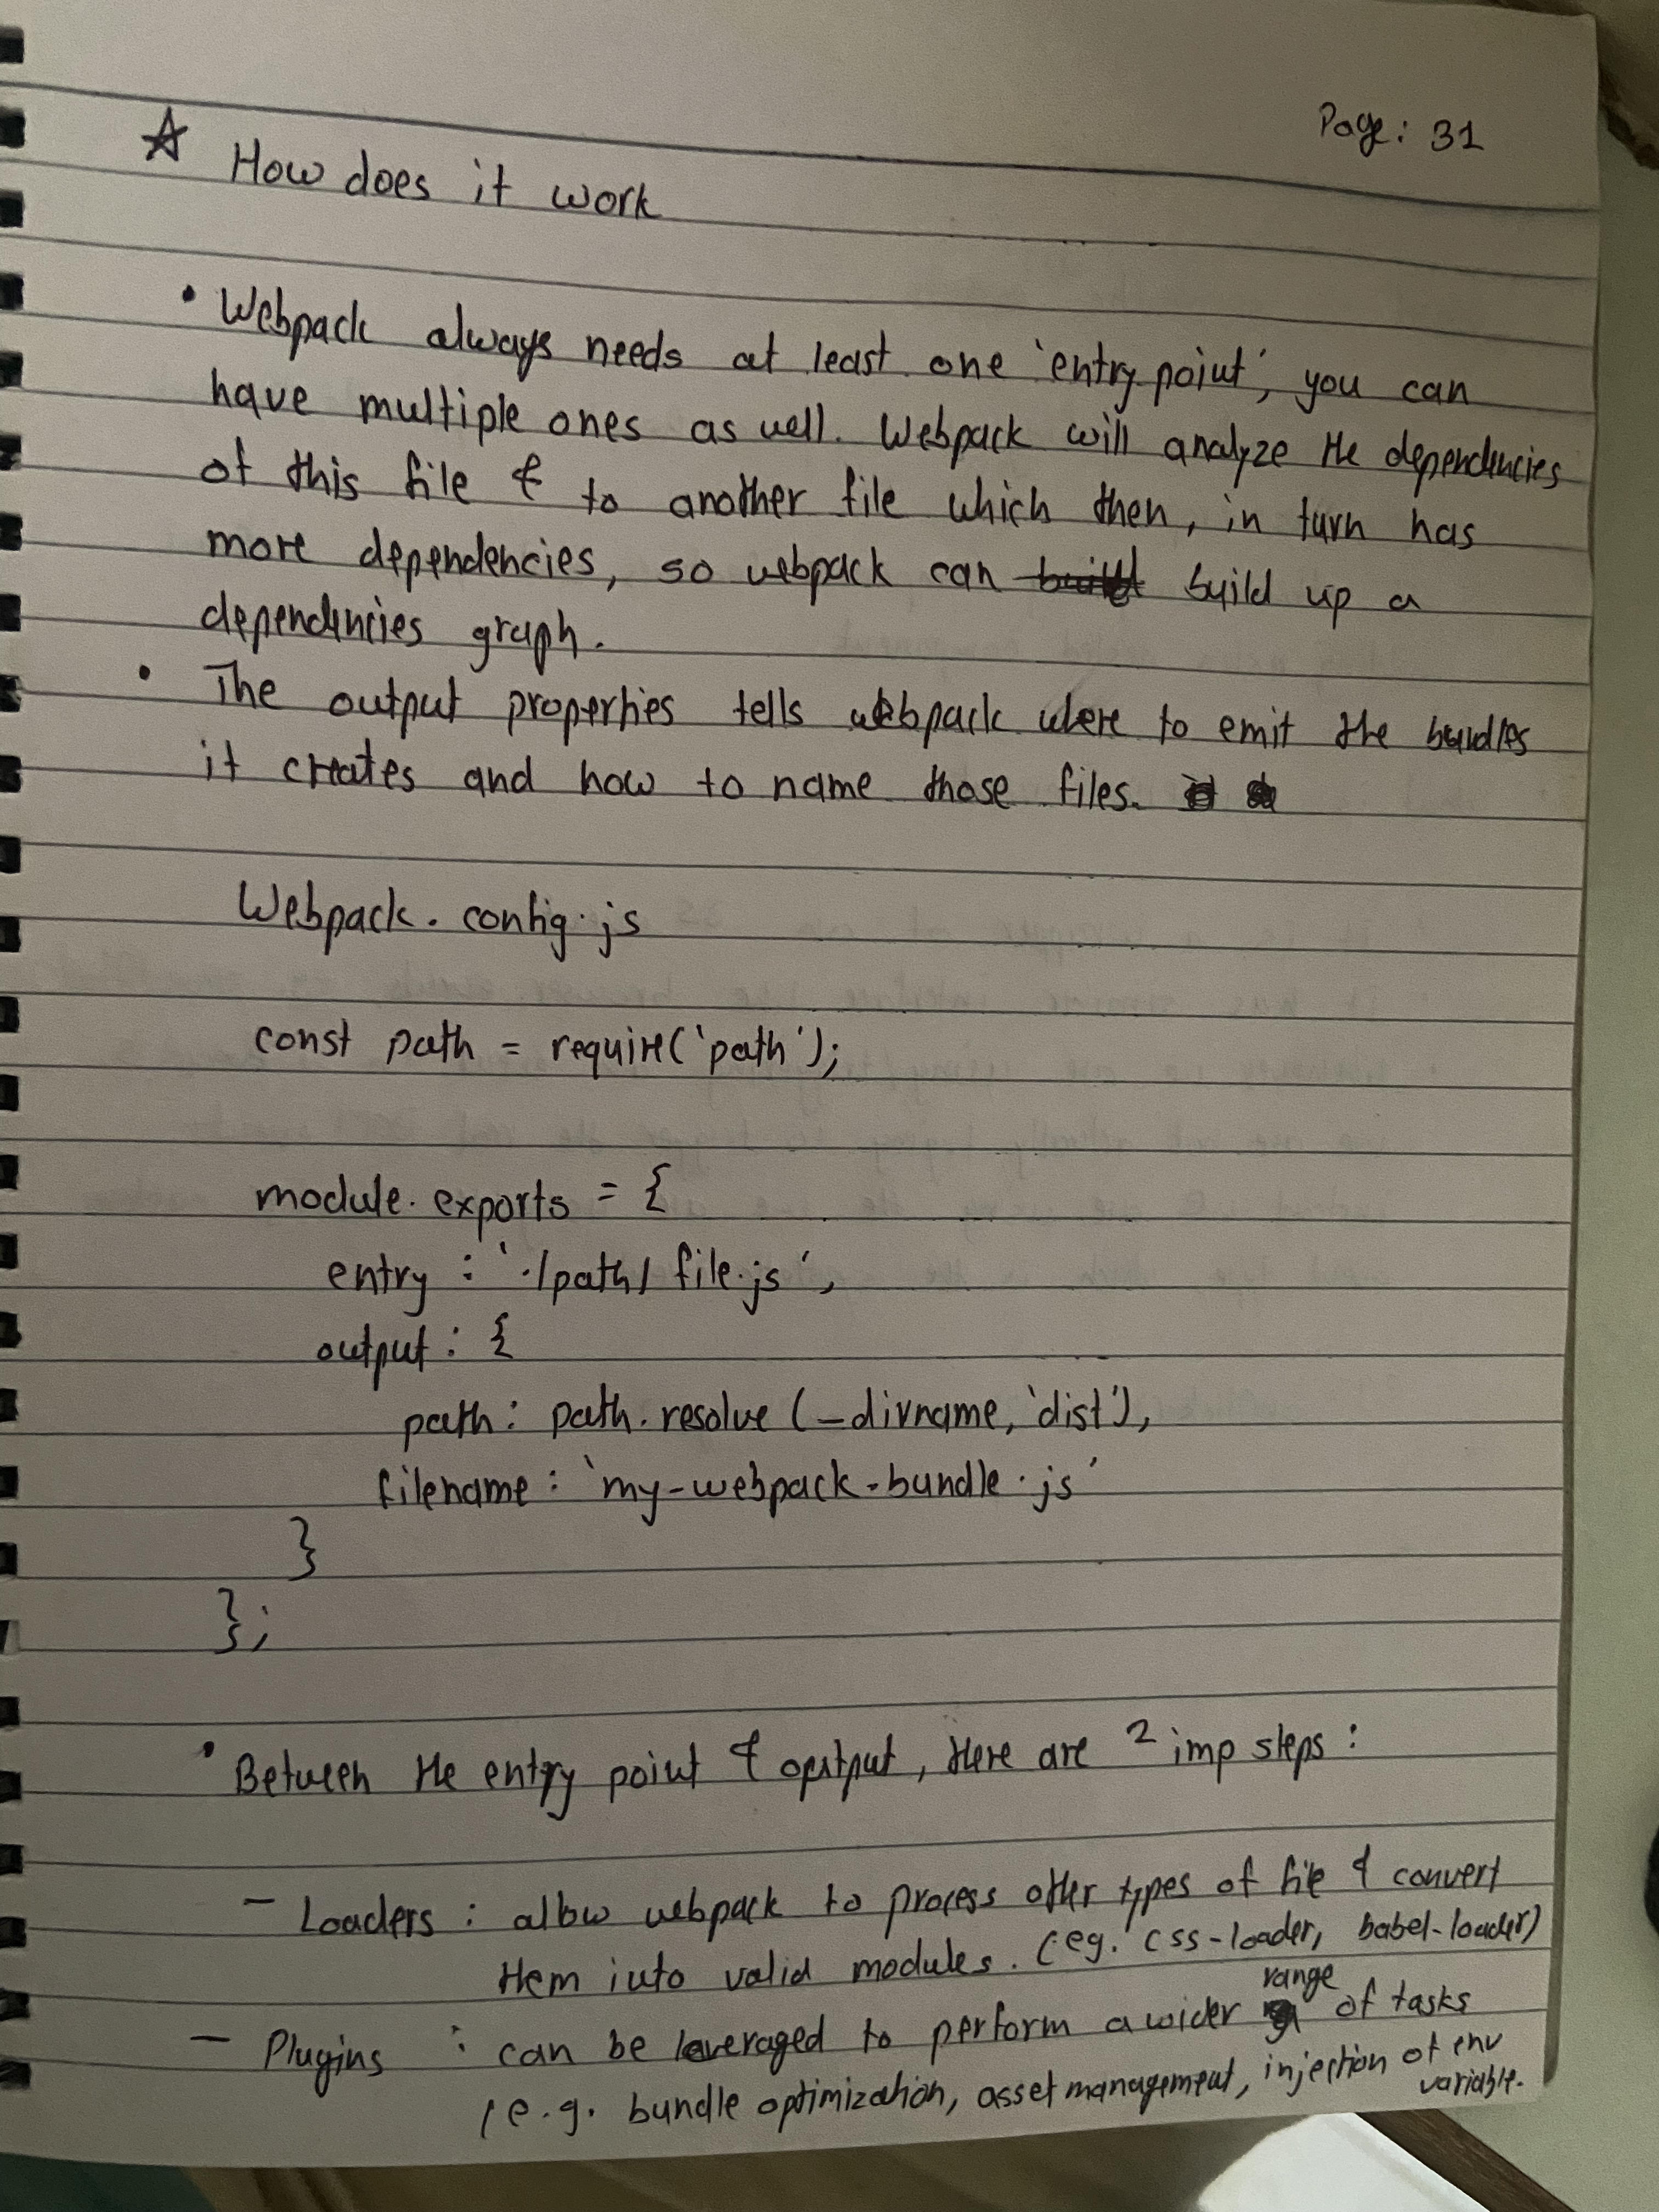 Page: 31
☆ How does it work
• Webpack always needs at least one 'entry point', you can
have multiple ones as well. Webpack will analyze the dependencies
of this file & to another file which then, in turn has
more dependencies, so webpack can build up a
dependencies graph.
• The output properties tells webpack where to emit the bundles
it creates and how to name those files.
Webpack.config.js
const path = require('path');
module.exports = {
entry : './path/file.js',
output : {
path: path.resolve (_dirname, 'dist'),
filename : 'my-webpack-bundle.js'
}
};
• Between the entry point & output, there are 2 imp steps :
- Loaders : allow webpack to process other types of file & convert
them into valid modules. (eg. css-loader, babel-loader)
- Plugins : can be leveraged to perform a wider range of tasks
(e.g. bundle optimization, asset management, injection of env
variable.